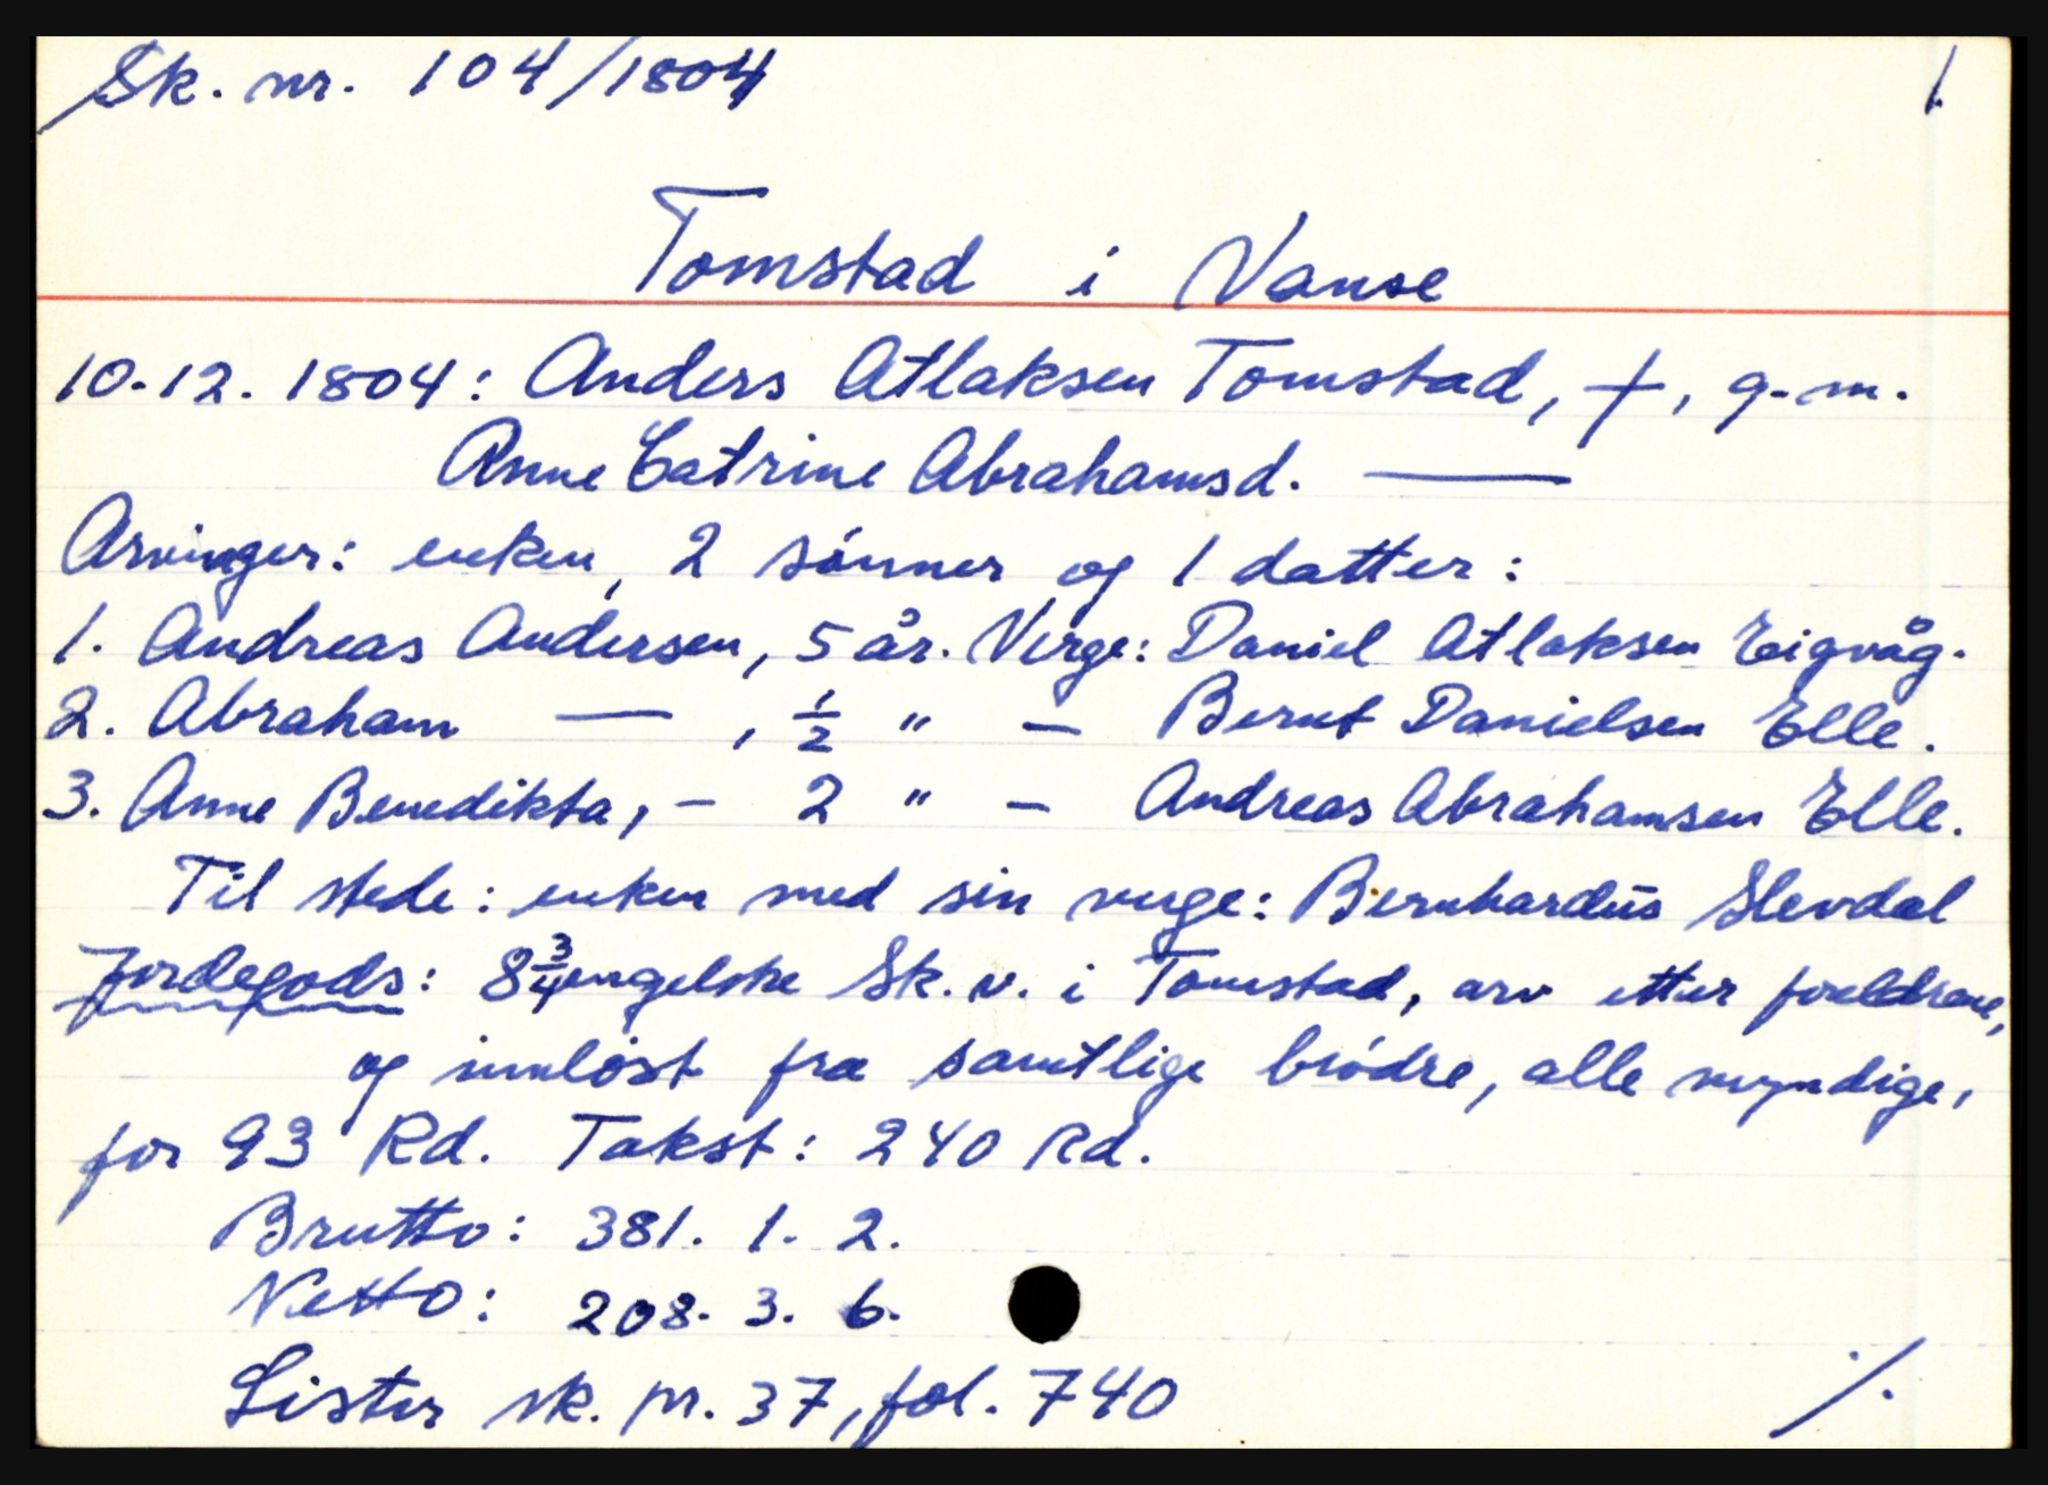 Sk. nr. 104/1804 1.
Tomstad i Vanse
10.12.1804: Anders Atlaksen Tomstad, †, g.m.
Anne Catrine Abrahamsd. —
Arvinger: enken, 2 sönner og 1 datter:
1. Andreas Andersen, 5 år. Verge: Daniel Atlaksen Eigvåg.
2. Abraham — , 1/2 " — Bernt Danielsen Elle.
3. Anne Benedikta, - 2 " — Andreas Abrahamsen Elle.
Til stede: enken med sin verge: Bernhardus Slevdal
Jordegods: 8 3/4 engelske Sk. v. i Tomstad, arv etter foreldrene,
og innlöst fra samtlige brödre, alle myndige,
for 93 Rd. Takst: 240 Rd.
Brutto: 381. 1. 2.
Netto: 208. 3. 6.
Lister sk. pr. 37, fol. 740 ./.